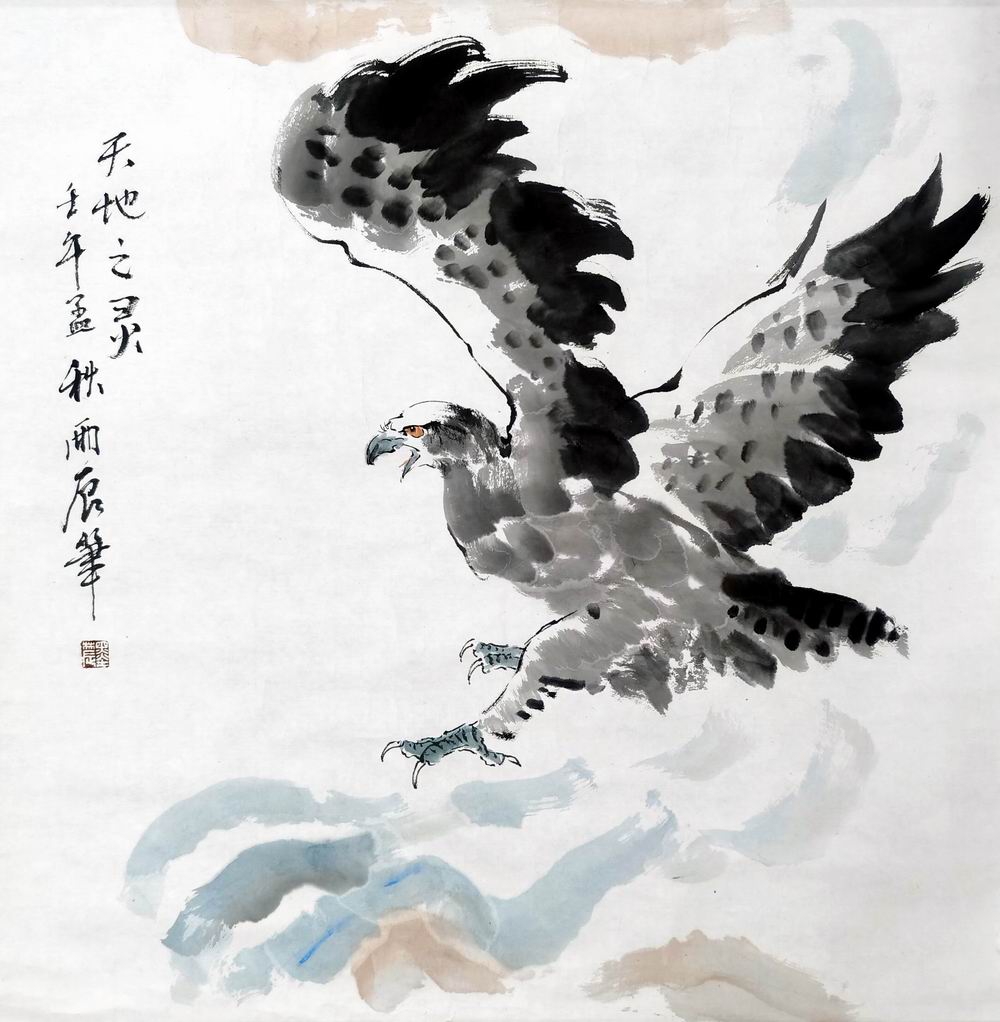 天地之灵
壬午孟秋雨辰筆